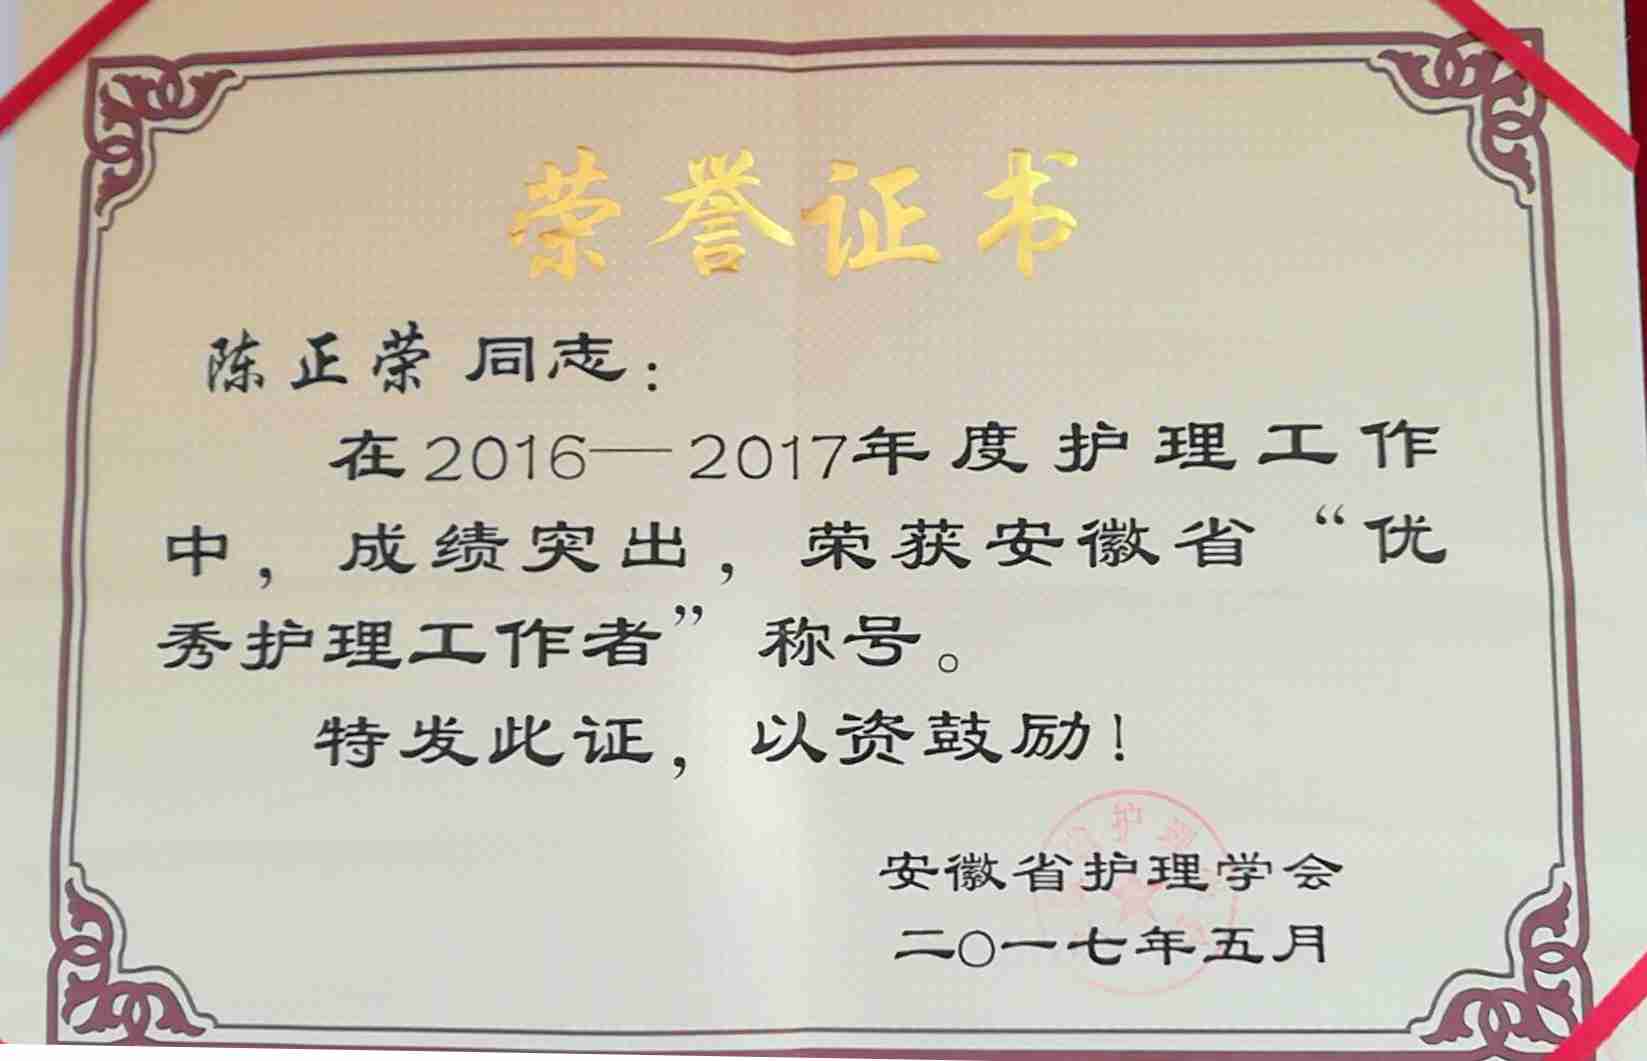 荣誉证书
陈正荣 同志：
在2016—2017年度护理工作
中，成绩突出，荣获安徽省“优
秀护理工作者”称号。
特发此证，以资鼓励！
安徽省护理学会
二〇一七年五月